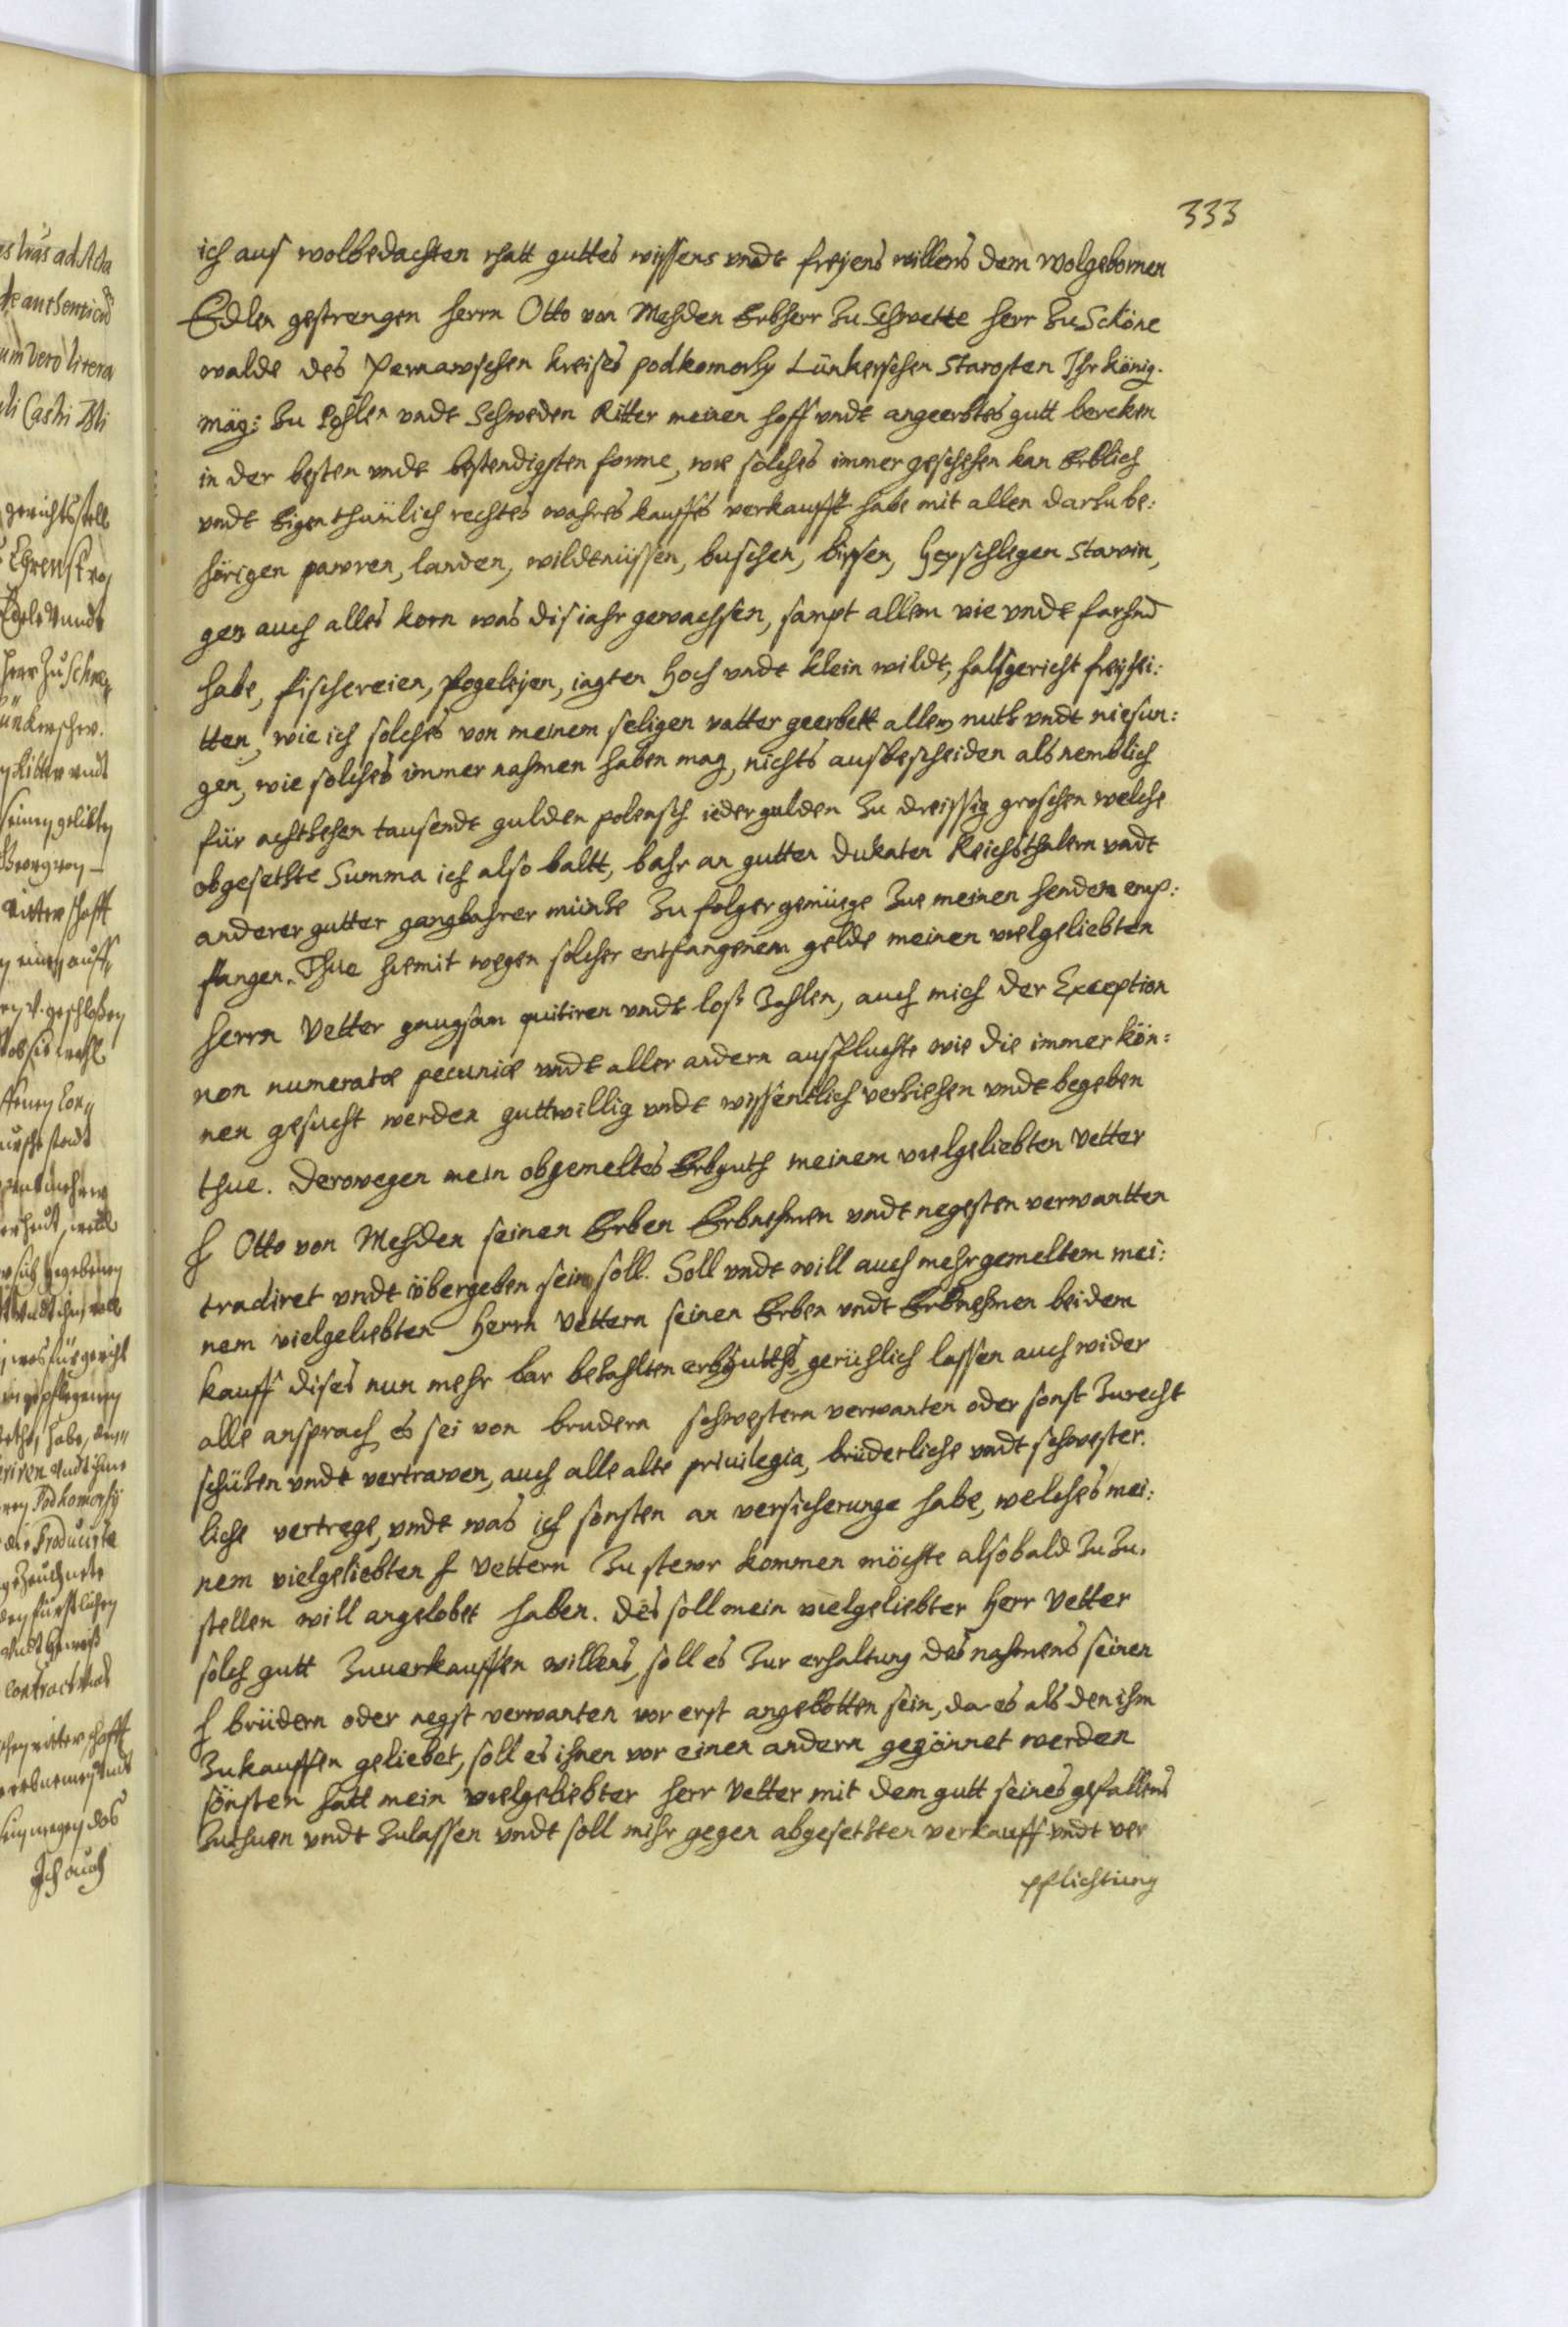 333
ich aus wolbedachten rhatt guttes wissens undt freyens willens dem wolgebornen
Edlen gestrengen Herrn Otto von Mehden Erbherr zu Schwette Herr zu Schöne
walde des Pernawschen kreises podkomorhy Lünkerschen Starosten Ihr könig.
mäy: zu Pohlen undt Schweden Ritter meinen hoff undt angeerbtes gutt bercken
in der besten undt bestendigsten forme, wie solches immer geschehen kan Erblich
undt Eigenthumlich rechtes wahres kauffes verkaufft habe mit allen darzu be:
hörigen pawren, landen, wildtnüssen, buschen, birsen, Heyschlegen Stawin,
gen auch alles korn was dis iahr gewachsen, sampt allem vie undt farhnd
habe, fischereien, fogeleyen, iagten hoch undt klein wildt, halsgericht freyhei:
tten, wie ich solches von meinem seligen vatter geerbett allem nutz undt niesun:
gen, wie solches immer nahmen haben mag, nichts ausbescheiden als nemblich
für achtzehen tausendt gulden polensch ieder gulden zu dreissig groschen welche
obgesetzte Summa ich also baltt, bahr an gutten dukaten Reichsthalern undt
anderer gutter gangbahrer müntze zu folger genüege zue meinen henden emp:
fangen. Thue hiemit wegen solcher entfangenem gelde meinen vielgeliebten
Herrn Vetter gnugsam quitiren undt loss zehlen, auch mich der Exception
non numeratæ pecuniæ undt aller andern ausfluchte wie die immer kön:
nen gesucht werden guttwillig undt wissentlich verziehen undt begeben
thue. Derowegen mein obgemeltes Erbguth meinem vielgeliebten Vetter
H Otto von Mehden seinen Erben Erbnehmen undt negesten verwantten
tradiret undt übergeben sein soll. Soll undt will auch mehrgemeltem mei:
nem vielgeliebten Herrn Vettern seinen Erben undt Erbnehmen bei dem
kauff dises nun mehr bar bezahlten erbgutths, gerüchlich lassen auch wider
alle ansprach es sei von brudern schwestern verwanten oder sonst zurecht
schützen undt vertrawen, auch alle alte priuilegia, brüderliche undt schwester.
liche vertrege, undt was ich sonsten an versicherunge habe, welches mei:
nem vielgeliebten H Vettern zu stewr kommen möchte alsobald zu zu.
stellen will angelobet haben. Des soll mein vielgeliebter Herr Vetter
solch gutt zuuerkauffen willens, soll es zur erhaltung des nahmens seinen
H brüdern oder negst verwanten vor erst angebotten sein, da es als den ihm
zukauffen geliebet, soll es ihnen vor einen andern gegönnet werden
sonsten hatt mein vielgeliebter Herr Vetter mit dem gutt seines gefallens
zuthuen undt zulassen undt soll mihr gegen abgesetzten verkauff undt ver
pflichtung